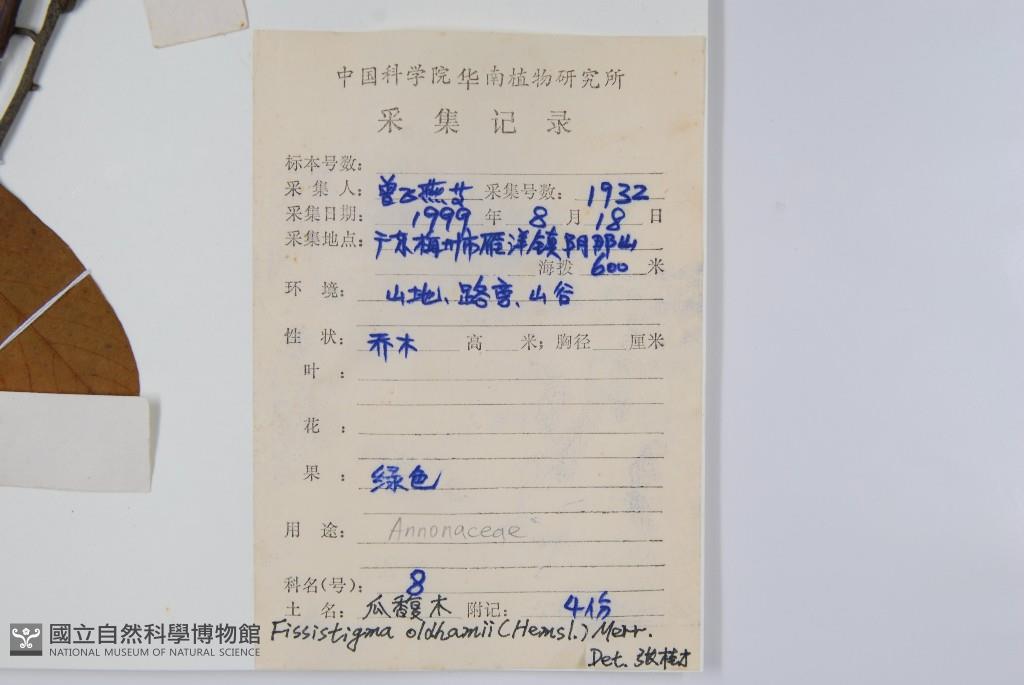 中国科学院华南植物研究所
采集记录
标本号数:
采集人: 曾飞燕 采集号数: 1932
采集日期: 1999 年 8 月 18 日
采集地点: 广东梅州市雁洋镇阴那山
海拨 600 米
环境: 山地、路旁、山谷
性状: 乔木 高 米; 胸径 厘米
叶:
花:
果: 绿色
用途: Annonaceae
科名(号): 8
土名: 瓜馥木 附记: 4份
Fissistigma oldhamii (Hemsl.) Merr.
Det. 张桂才
國立自然科學博物館
NATIONAL MUSEUM OF NATURAL SCIENCE